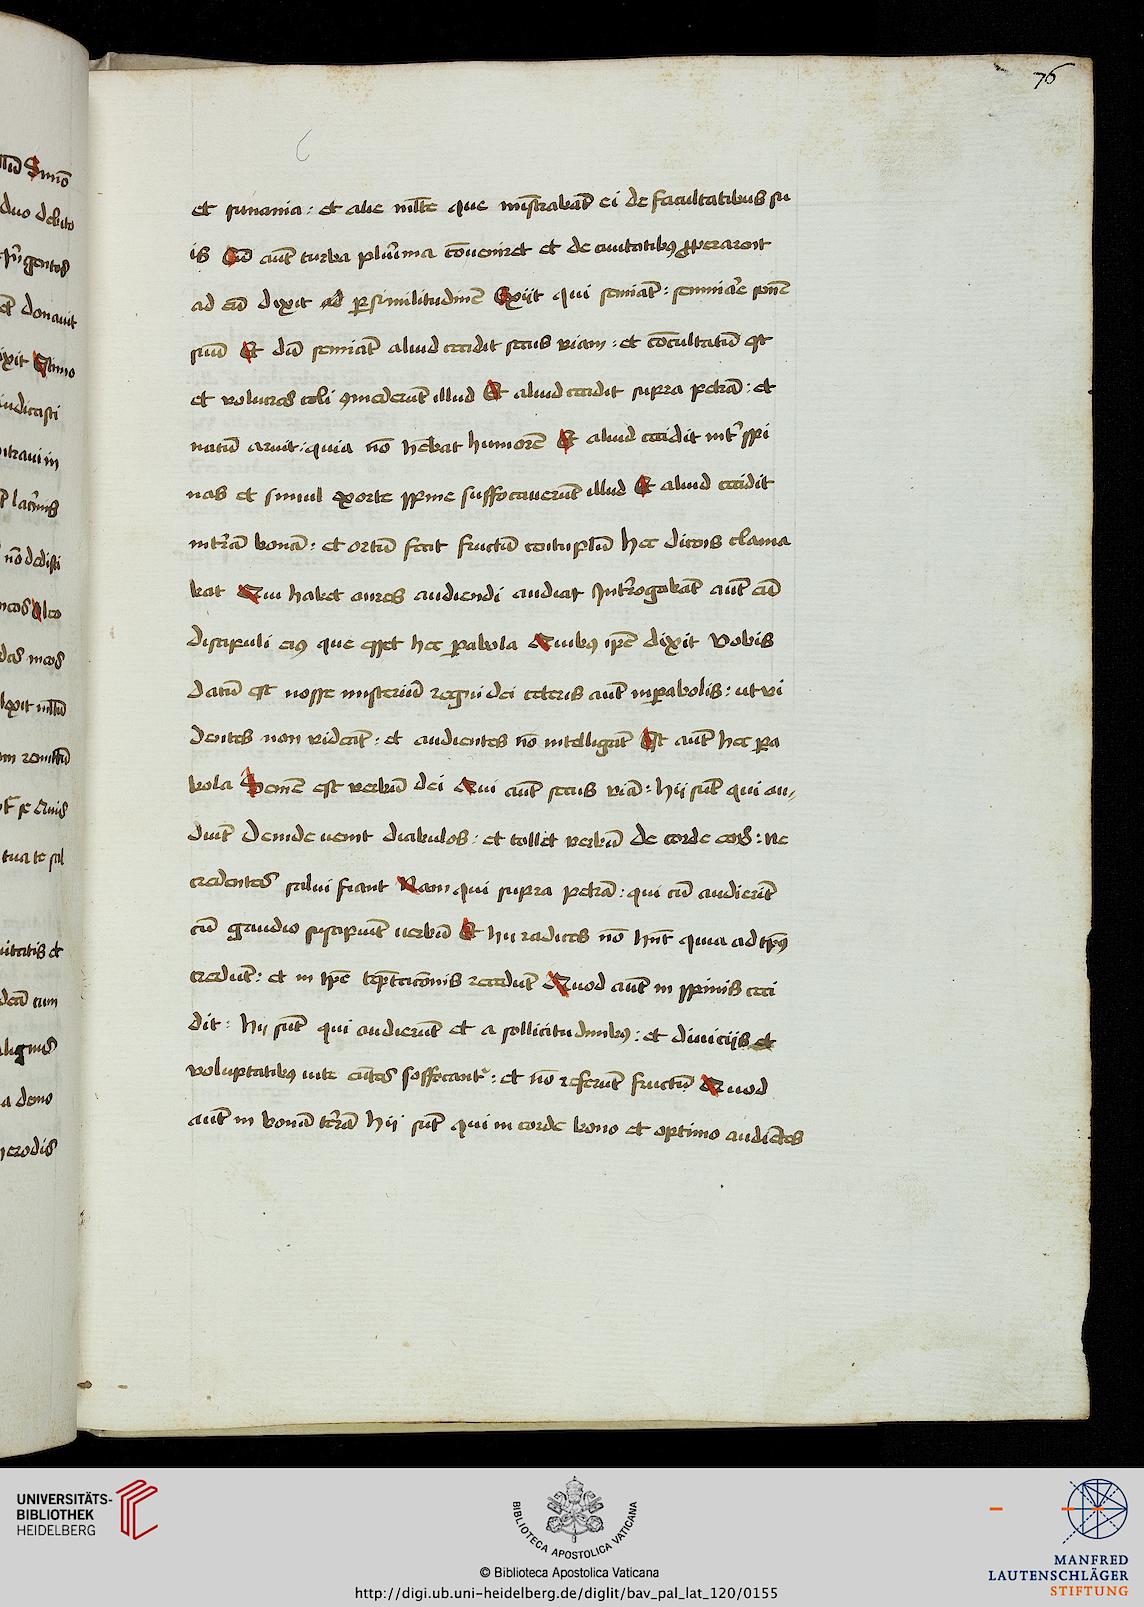 76
et sunania : et alie mlte que mistrabāt ei de facultatibus su
is Cū aut turba plurima cōveniret et de civitatibus properarent
ad eū dixit ad p similitudinē Exiit qui semīat : seminare semē
suū Et dū semīat aliud cecidit secus viam : et cōculcatū est
et volucres celi comederūt illud Et aliud cecidit supra petrā : et
natū aruit : quia nō hēbat humorē Et aliud cecidit int spi
nas et simul exorte spine suffocaverūt illud Et aliud cecidit
in trā bonā : et ortū fecit fructū centuplū hec dicens clama
bat Qui habet aures audiendi audiat Introgabāt aūt eū
discipuli eius que esset hec pabola Quibus ipē dixit Vobis
datū est nosse misteriū regni dei ceteris aūt in pabolis : ut vi
dentes non videāt : et audientes nō intelligāt Est aūt hec pa
bola Semē est verbū dei Qui aūt secus viā : hij sūt qui au
diūt Deinde venit diabulos : et tollit verbū de corde eorū : ne
credentes salvi fiant Nam qui supra petrā : qui cū audierīt
cū gaudio suscipiūt verbū Et hii radices nō hnt quia ad tps
credūt : et in tpe teptacionis recedūt Quod aūt in spinis ceci
dit : hij sūt qui audierūt et a sollicitudinibus : et diviciis et
voluptatibus vite eūtes soffocantr : et nō referūt fructū Quod
aūt in bonā terā hij sūt qui in corde bono et optimo audiētes
UNIVERSITÄTS-
BIBLIOTHEK
HEIDELBERG
BIBLIOTECA APOSTOLICA VATICANA
© Biblioteca Apostolica Vaticana
http://digi.ub.uni-heidelberg.de/diglit/bav_pal_lat_120/0155
MANFRED
LAUTENSCHLÄGER
STIFTUNG